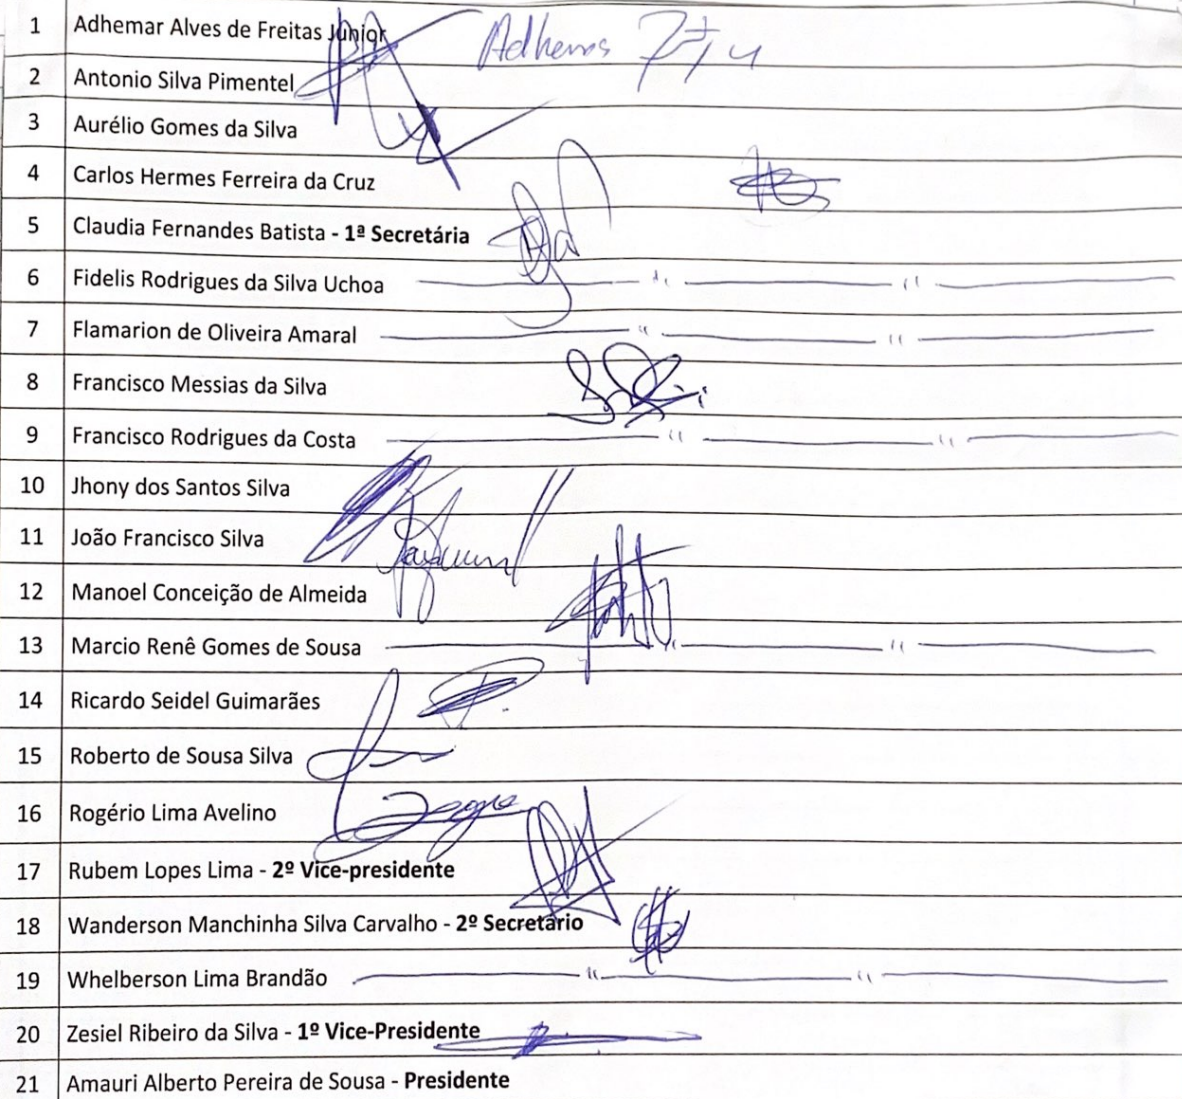 1 Adhemar Alves de Freitas Júnior Adhemar
2 Antonio Silva Pimentel
3 Aurélio Gomes da Silva
4 Carlos Hermes Ferreira da Cruz
5 Claudia Fernandes Batista - 1ª Secretária
6 Fidelis Rodrigues da Silva Uchoa
7 Flamarion de Oliveira Amaral
8 Francisco Messias da Silva
9 Francisco Rodrigues da Costa
10 Jhony dos Santos Silva
11 João Francisco Silva
12 Manoel Conceição de Almeida
13 Marcio Renê Gomes de Sousa
14 Ricardo Seidel Guimarães
15 Roberto de Sousa Silva
16 Rogério Lima Avelino
17 Rubem Lopes Lima - 2º Vice-presidente
18 Wanderson Manchinha Silva Carvalho - 2º Secretário
19 Whelberson Lima Brandão
20 Zesiel Ribeiro da Silva - 1º Vice-Presidente
21 Amauri Alberto Pereira de Sousa - Presidente